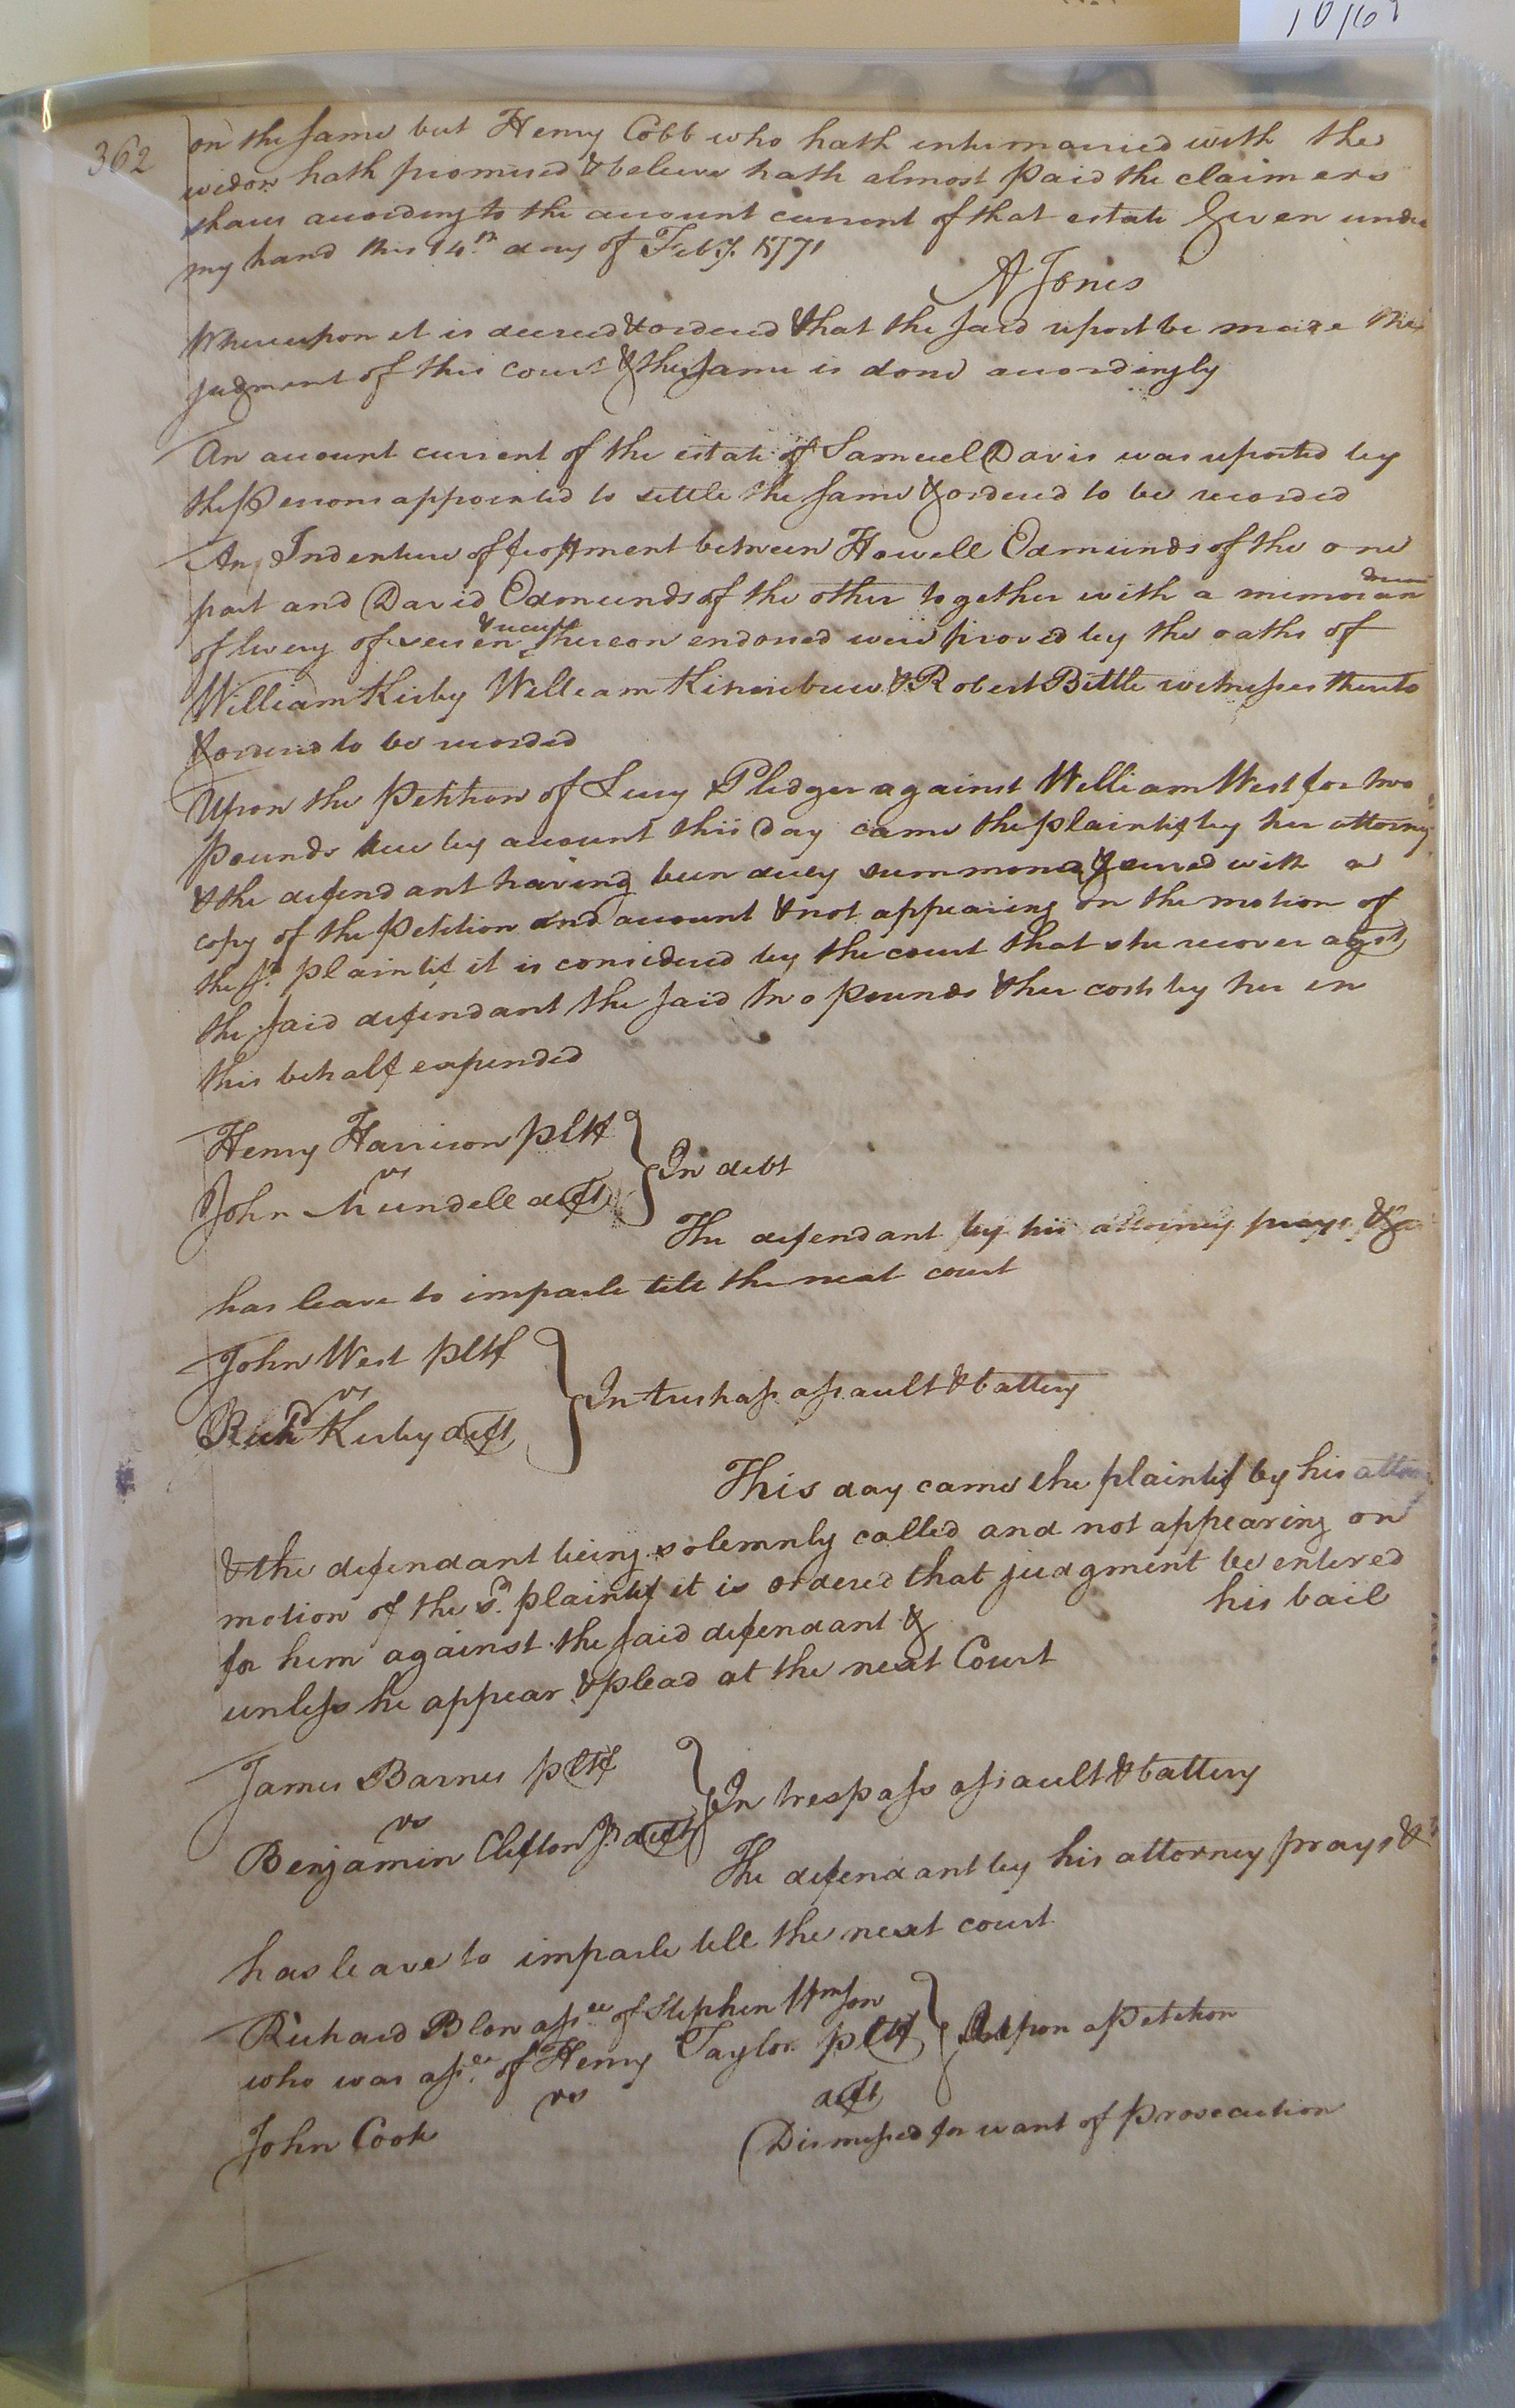 362
on the same but Henry Cobb who hath intermarried with the
widow hath promised & believe hath almost paid the claimers
share according to the account current of that estate Given under
my hand this 14th day of Feby. 1771
A Jones
Whereupon it is decreed & ordered that the said report be made the
judgment of this court & the same is done accordingly
An account current of the estate of Samuel Davis was reported by
the Persons appointed to settle the same & ordered to be recorded
An Indenture of feoffment between Howell Edmunds of the one
part and David Edmunds of the other together with a memorandum
of livery of seisen & receipt thereon endorsed were proved by the oaths of
William Kirby William & Robert Bittle witnesses thereto
& ordered to be recorded
Upon the Petition of Lucy Pledger against William West for two
pounds due by account this day came the plaintif by her attorney
& the defendant having been duly summoned & served with a
copy of the Petition and account & not appearing on the motion of
the sd. plaintif it is considered by the court that she recover agst
the said defendant the said two pounds & her costs by her in
this behalf expended
Henry Harrison pltf
vs
John Mundell deft
In debt
The defendant by his attorney prays &
has leave to imparle till the next court
John West pltf
vs
Richd Kirby deft
In treshass assault & battery
This day came the plaintif by his
& the defendant being solemnly called and not appearing on
motion of the sd. plaintif it is ordered that judgment be entered
for him against the said defendant & his bail
unless he appear & plead at the next Court
James Barnes pltf
vs
Benjamin Clifton Jr deft
In trespass assault & battery
The defendant by his attorney prays &
has leave to imparle till the next court
Richard Blow assee of Stephen
who was assee. of Henry Taylor pltf
vs
John Cook deft
Upon a Petition
Dismissed for want of Prosecution